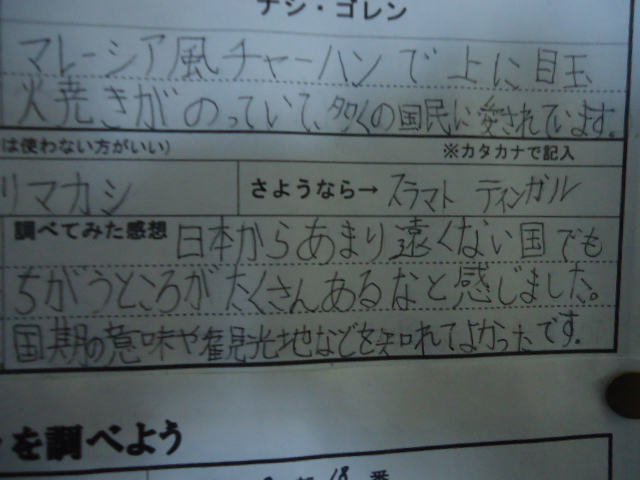 ナシ・ゴレン
マレーシア風チャーハンで上に目玉
火焼きがのっていて、多くの国民に愛されています。
は使わない方がいい)
※カタカナで記入
リマカシ
さようなら→ スラマト ティンガル
調べてみた感想 日本からあまり遠くない国でも
ちがうところがたくさんあるなと感じました。
国期の意味や観光地などを知れてよかったです。
を調べよう
18番